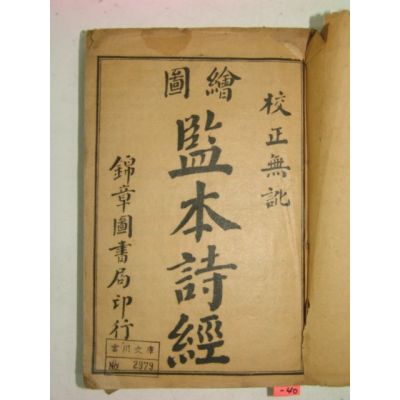 校正無訛
繪圖
監本詩經
錦章圖書局印行
川文庫
No 2979
-40